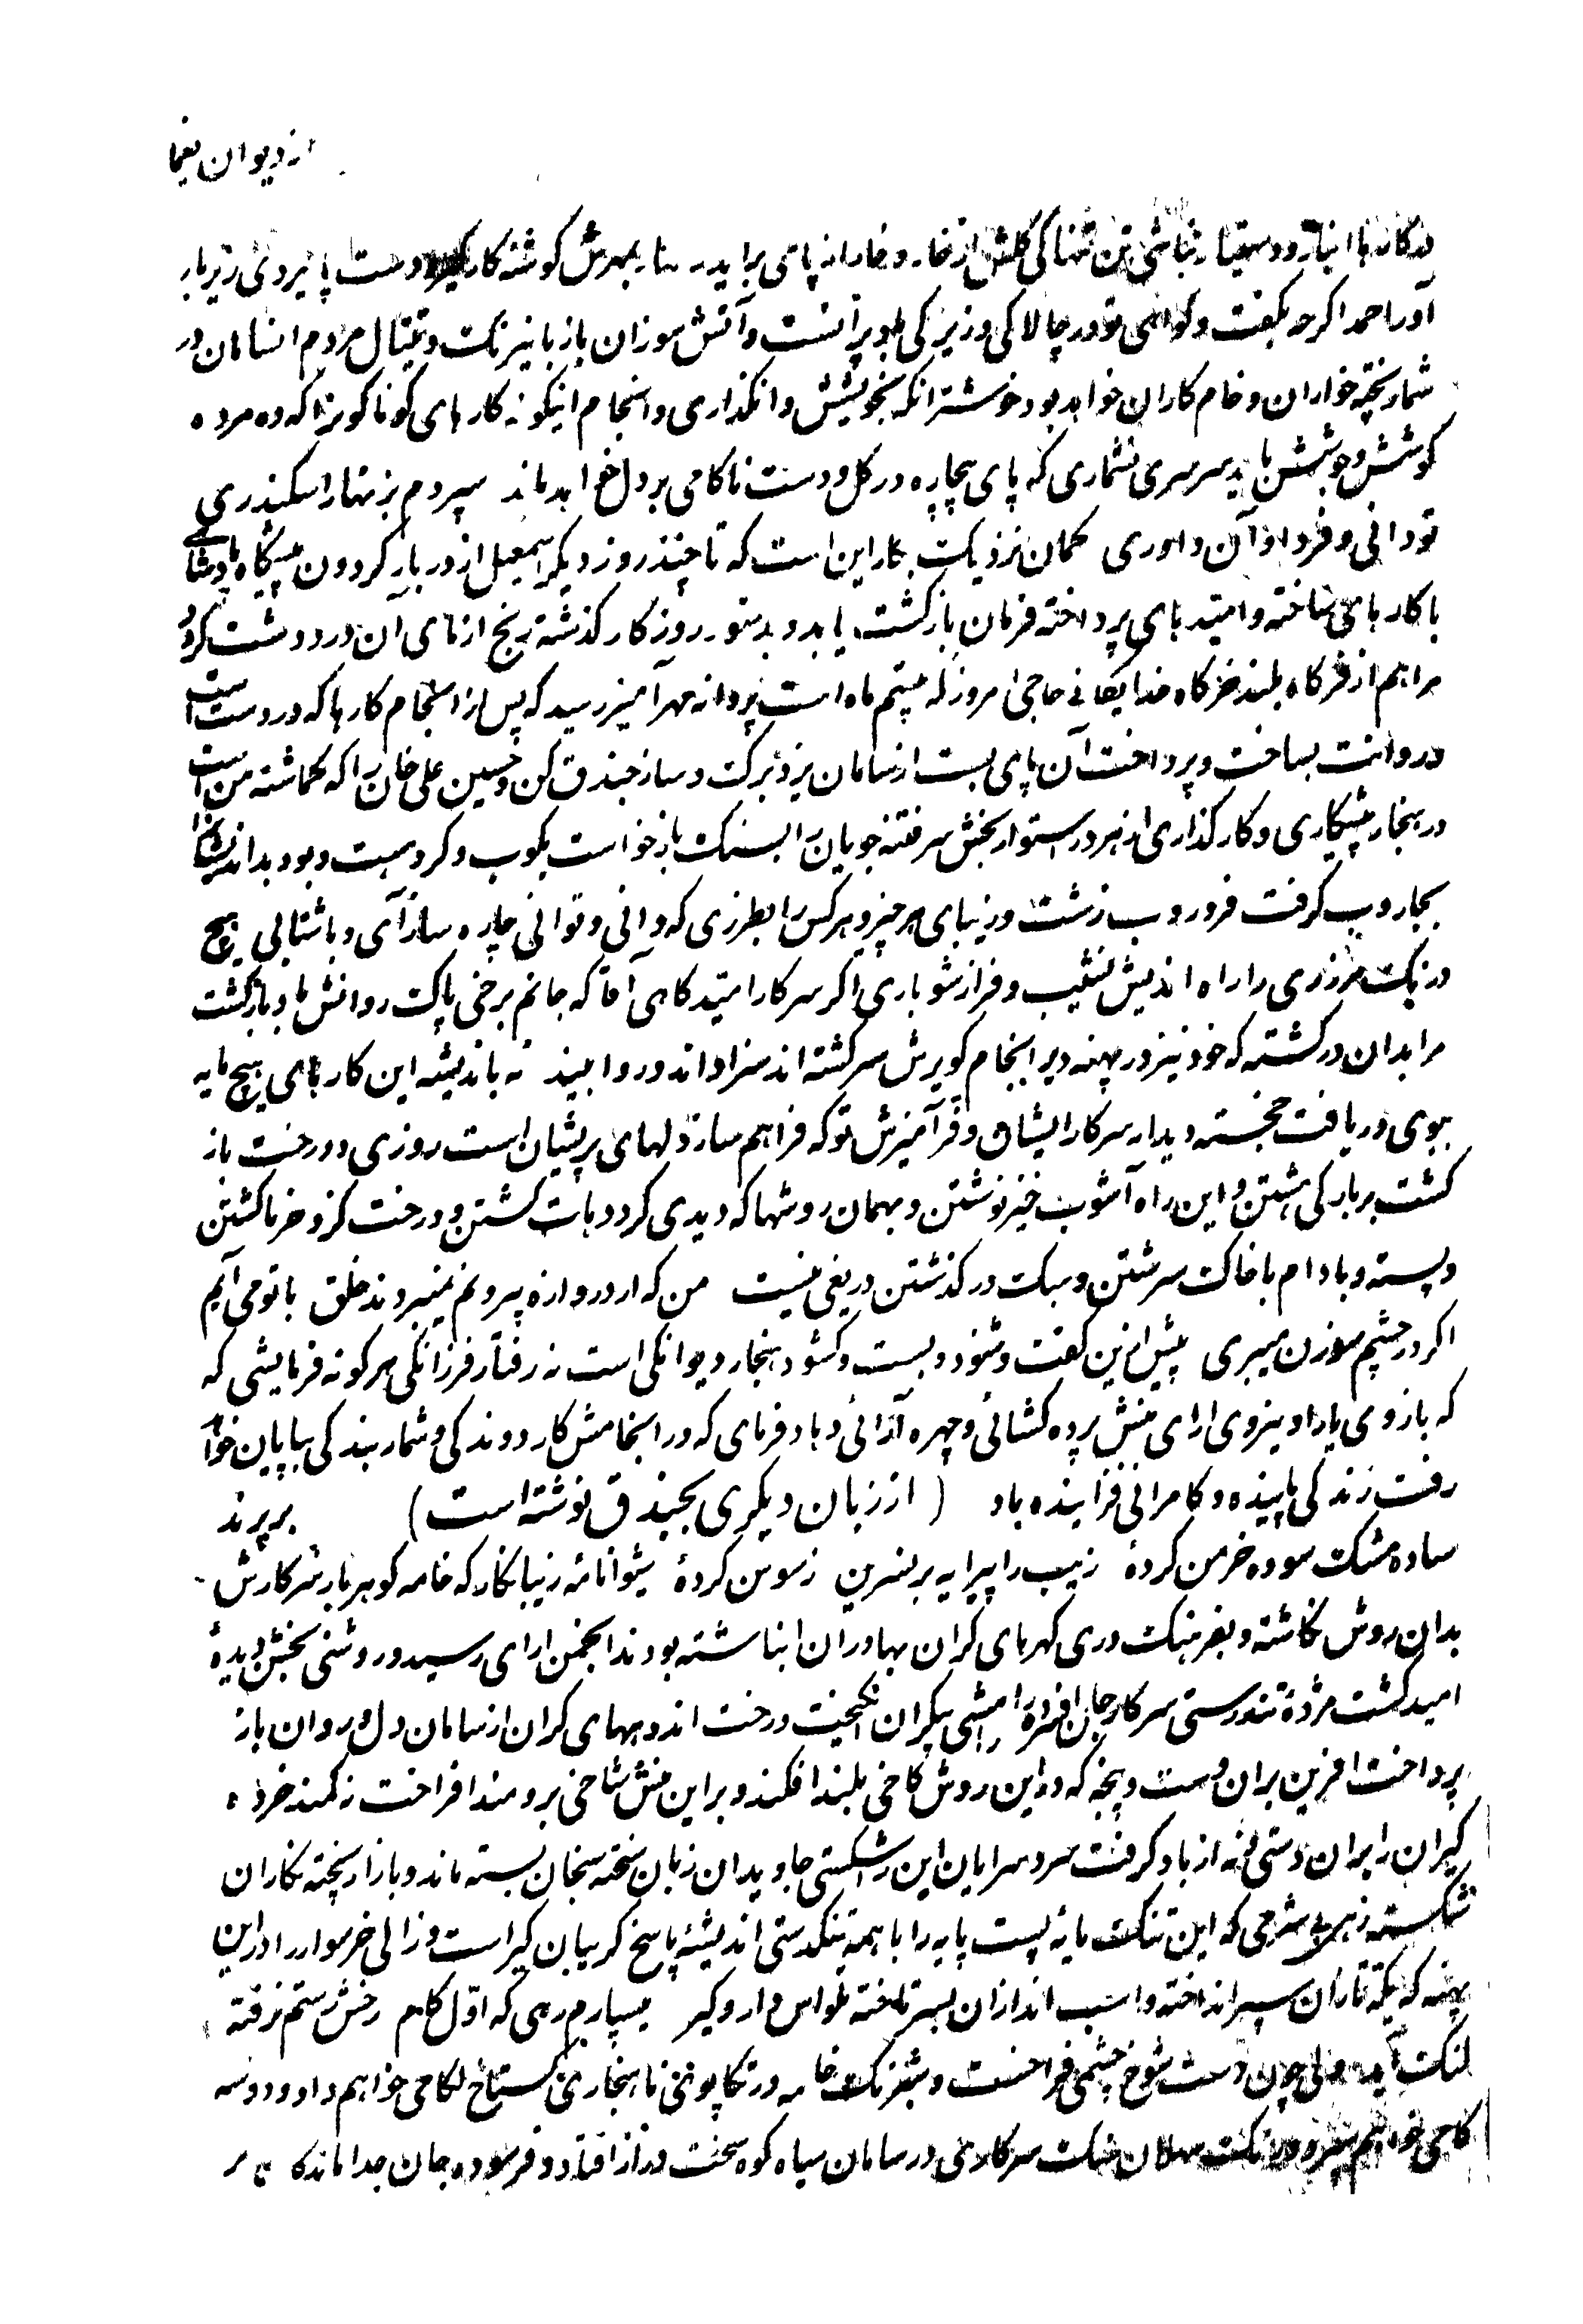 از دیوان یغما
تن تنها کی گلش از خار و خار از پای براید بهرش گوشه کار دست پایمردی زیر بار
آور احمد اگرچه بگفت و گواهی تو در چالاکی و زیرکی است و آتش سوزان باز با نیرنگ و تیتال مردم انسامان در
شمار پخته خواران و خام کاران خواهد بود خوشتر آنکه بخویشش وانگذاری و انجام اینگونه کارهای گوناگونرا که ده مرده
کوشش و جوشش باید سرسری نشماری که پای بیچاره در گل و دست ناکامی بر دل خواهد ماند سپردم بزنهار اسکندری
تو دانی و فردا و آن داوری گمان نزدیک بکار این است که تا چند روز دیگر اسمعیل از دربار گردون پیشگاه پادشاهی
با کارهای ساخته و امیدهای پرداخته فرمان بازگشت یابد و بدستور روزگار گذشته رنج ازمای آن در و دشت گردد
مرا هم از فرگاه بلند خرگاه خدایگانی حاجی امروز که بیستم ماه است پروانه مهرآمیز رسید که پس از انجام کارها که در دست است
در وانت بساخت و پرداخت آن پای بست از سامان یزد برگ و ساز جندق کن و حسین علی خان را که گماشته من است
در هنجار پیشکاری و کارگذاری از هر در استوار بخش سر فتنه جویان را بسنگ بازخواست بکوب و گرد هست و بود بداندیشانرا
بجاروب گرفت فروروب زشت و زیبای هر چیز و هر کس را بطرزی که دانی و توانی چاره ساز آی و باشتابی هیچ
درنگ مرزری را راه اندیش نشیب و فراز شو باری اگر سرکار امیدگاهی آقا که جانم برخی پاک روانش باد بازگشت
مرا بدان در گشته که خود نیز در پهنه دیر انجام کویرش سرگشته اند سزا داند و روا بیند نه باندیشه این کارهای هیچ مایه
ببوی دریافت خجسته دیدار سرکار ایشان و فر آمیزش تو که فراهم ساز دلهای پریشان است روزی دو رخت باز
گشت بر بارگی هشتن و این راه آشوب خیز نوشتن و بهمان روشها که دیدی گرد دهات گشتن و درخت گز و خرما کشتن
و پسته و بادام با خاک سرشتن و سبک در گذشتن دریغی نیست من که از دروازه بیرونم نمیبردند خلق با تو می آیم
اگر در چشم سوزن میبری پیش ازین گفت و شنود و بست و گشود هنجار دیوانگی است نه رفتار فرزانگی هر گونه فرمایشی که
که بازوی یارا و نیروی ارای منش پرده گشائی و چهره آرائی دهاد فرمای که در انجامش کار دوندگی و شمار بندگی بپایان خواهد
رفت زندگی پاینده و کامرانی فزاینده باد (از زبان دیگری بجندق نوشته است) بر پرند
ساده مشک سوده خرمن کردهٔ زیب را پیرایه بر نسرین ز سوسن کردهٔ شیوا نامه زیبا نگار که خامه گوهر بار سرکارش
بدان روش نگاشته و بفرهنگ دری گهرهای گران بها در ان انباشته بودند انجمن ارای رسید و روشنی بخش دیدهٔ
امید گشت مژدهٔ تندرستی سرکار جان افزا رامشی بیکران انگیخت و رخت اندوههای گران از سامان دل و روان باز
پرداخت افرین بران دست و پنجه که در این روش کاخی بلند افکند و بر این منش شاخی برومند افراخت نه کمند خرده
گیران را بر ان دستی نه از باد گرفت سرد سرایان این را شکستی جاویدان زبان سخته سخنان بسته ماند و بازار پخته کاران
شکسته زهی بی شرمی که این تنک مایه پست پایه را با همه تنگدستی اندیشهٔ پاسخ گریبان گیر است و زالی خر سوار را در این
پهنه که یکه تازان سپر انداخته و اسب اندازان بسر تاخته هواس دار و گیر میسپارم رهی که اول گام رخش رستم نرفته
لنگ آید ولی چون دست شوخ چشمی فراخست و شبرنگ خامه در تکاپوی نا هنجاری گستاخ لگامی خواهم داد و دو سه
گامی درنگ سرکار در سامان سیاه کوه سخت دراز افتاد و فرسوده جان جدا ماند